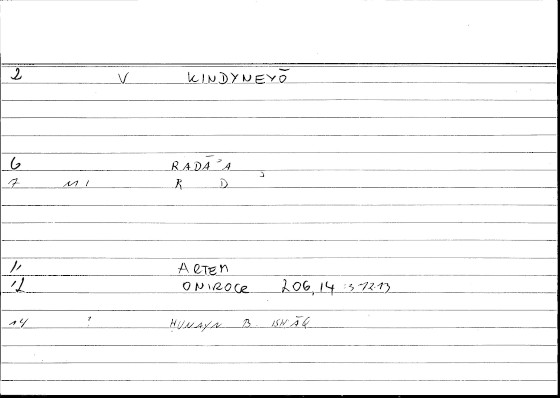 2 V KINDYNEYŌ
6 RADĀʾA
7 M1 R D
11 ARTEM
12 ONIROCR 206,14
14 ? HUNAYN B. ISḤĀQ